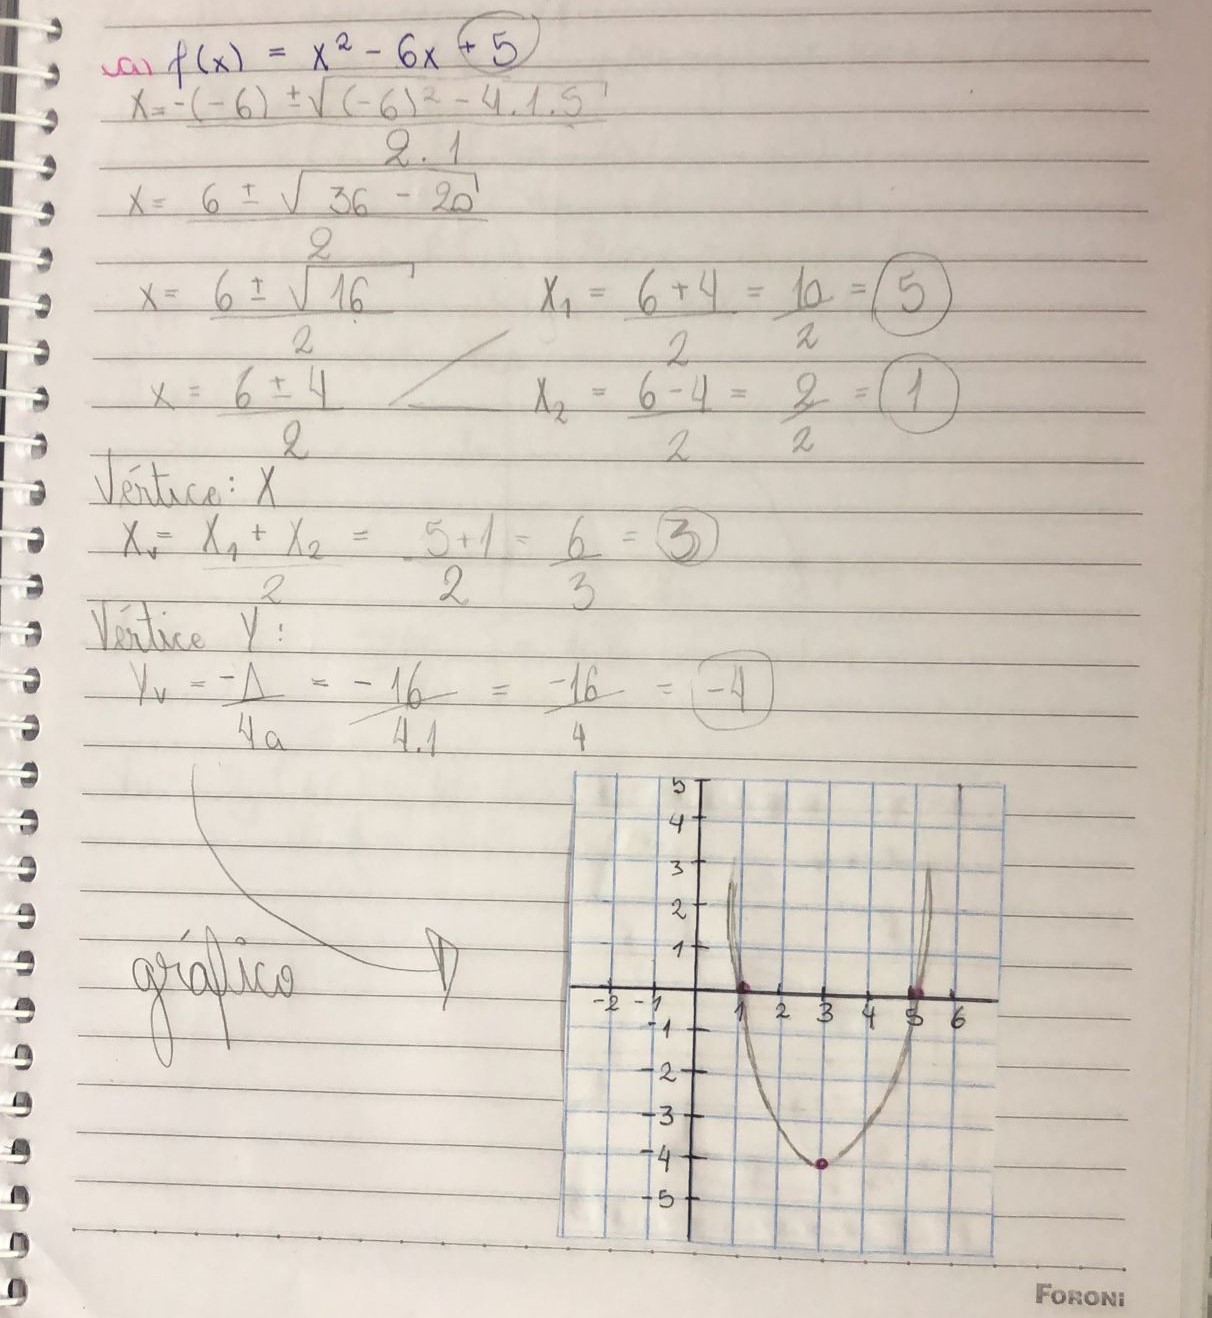 a) f(x) = x² - 6x + 5
x = -(-6) ± √(-6)² - 4.1.5
2.1
x = 6 ± √36 - 20
2
x = 6 ± √16 x₁ = 6+4 = 10 = 5
2 2 2
x = 6 ± 4 x₂ = 6-4 = 2 = 1
2 2 2
Vértice: X
Xᵥ = X₁ + X₂ = 5+1 = 6 = 3
2 2 3
Vértice Y:
Yᵥ = -Δ = -16 = -16 = -4
4a 4.1 4
gráfico
5
4
3
2
1
-2 -1 1 2 3 4 5 6
-1
-2
-3
-4
-5
FORONI